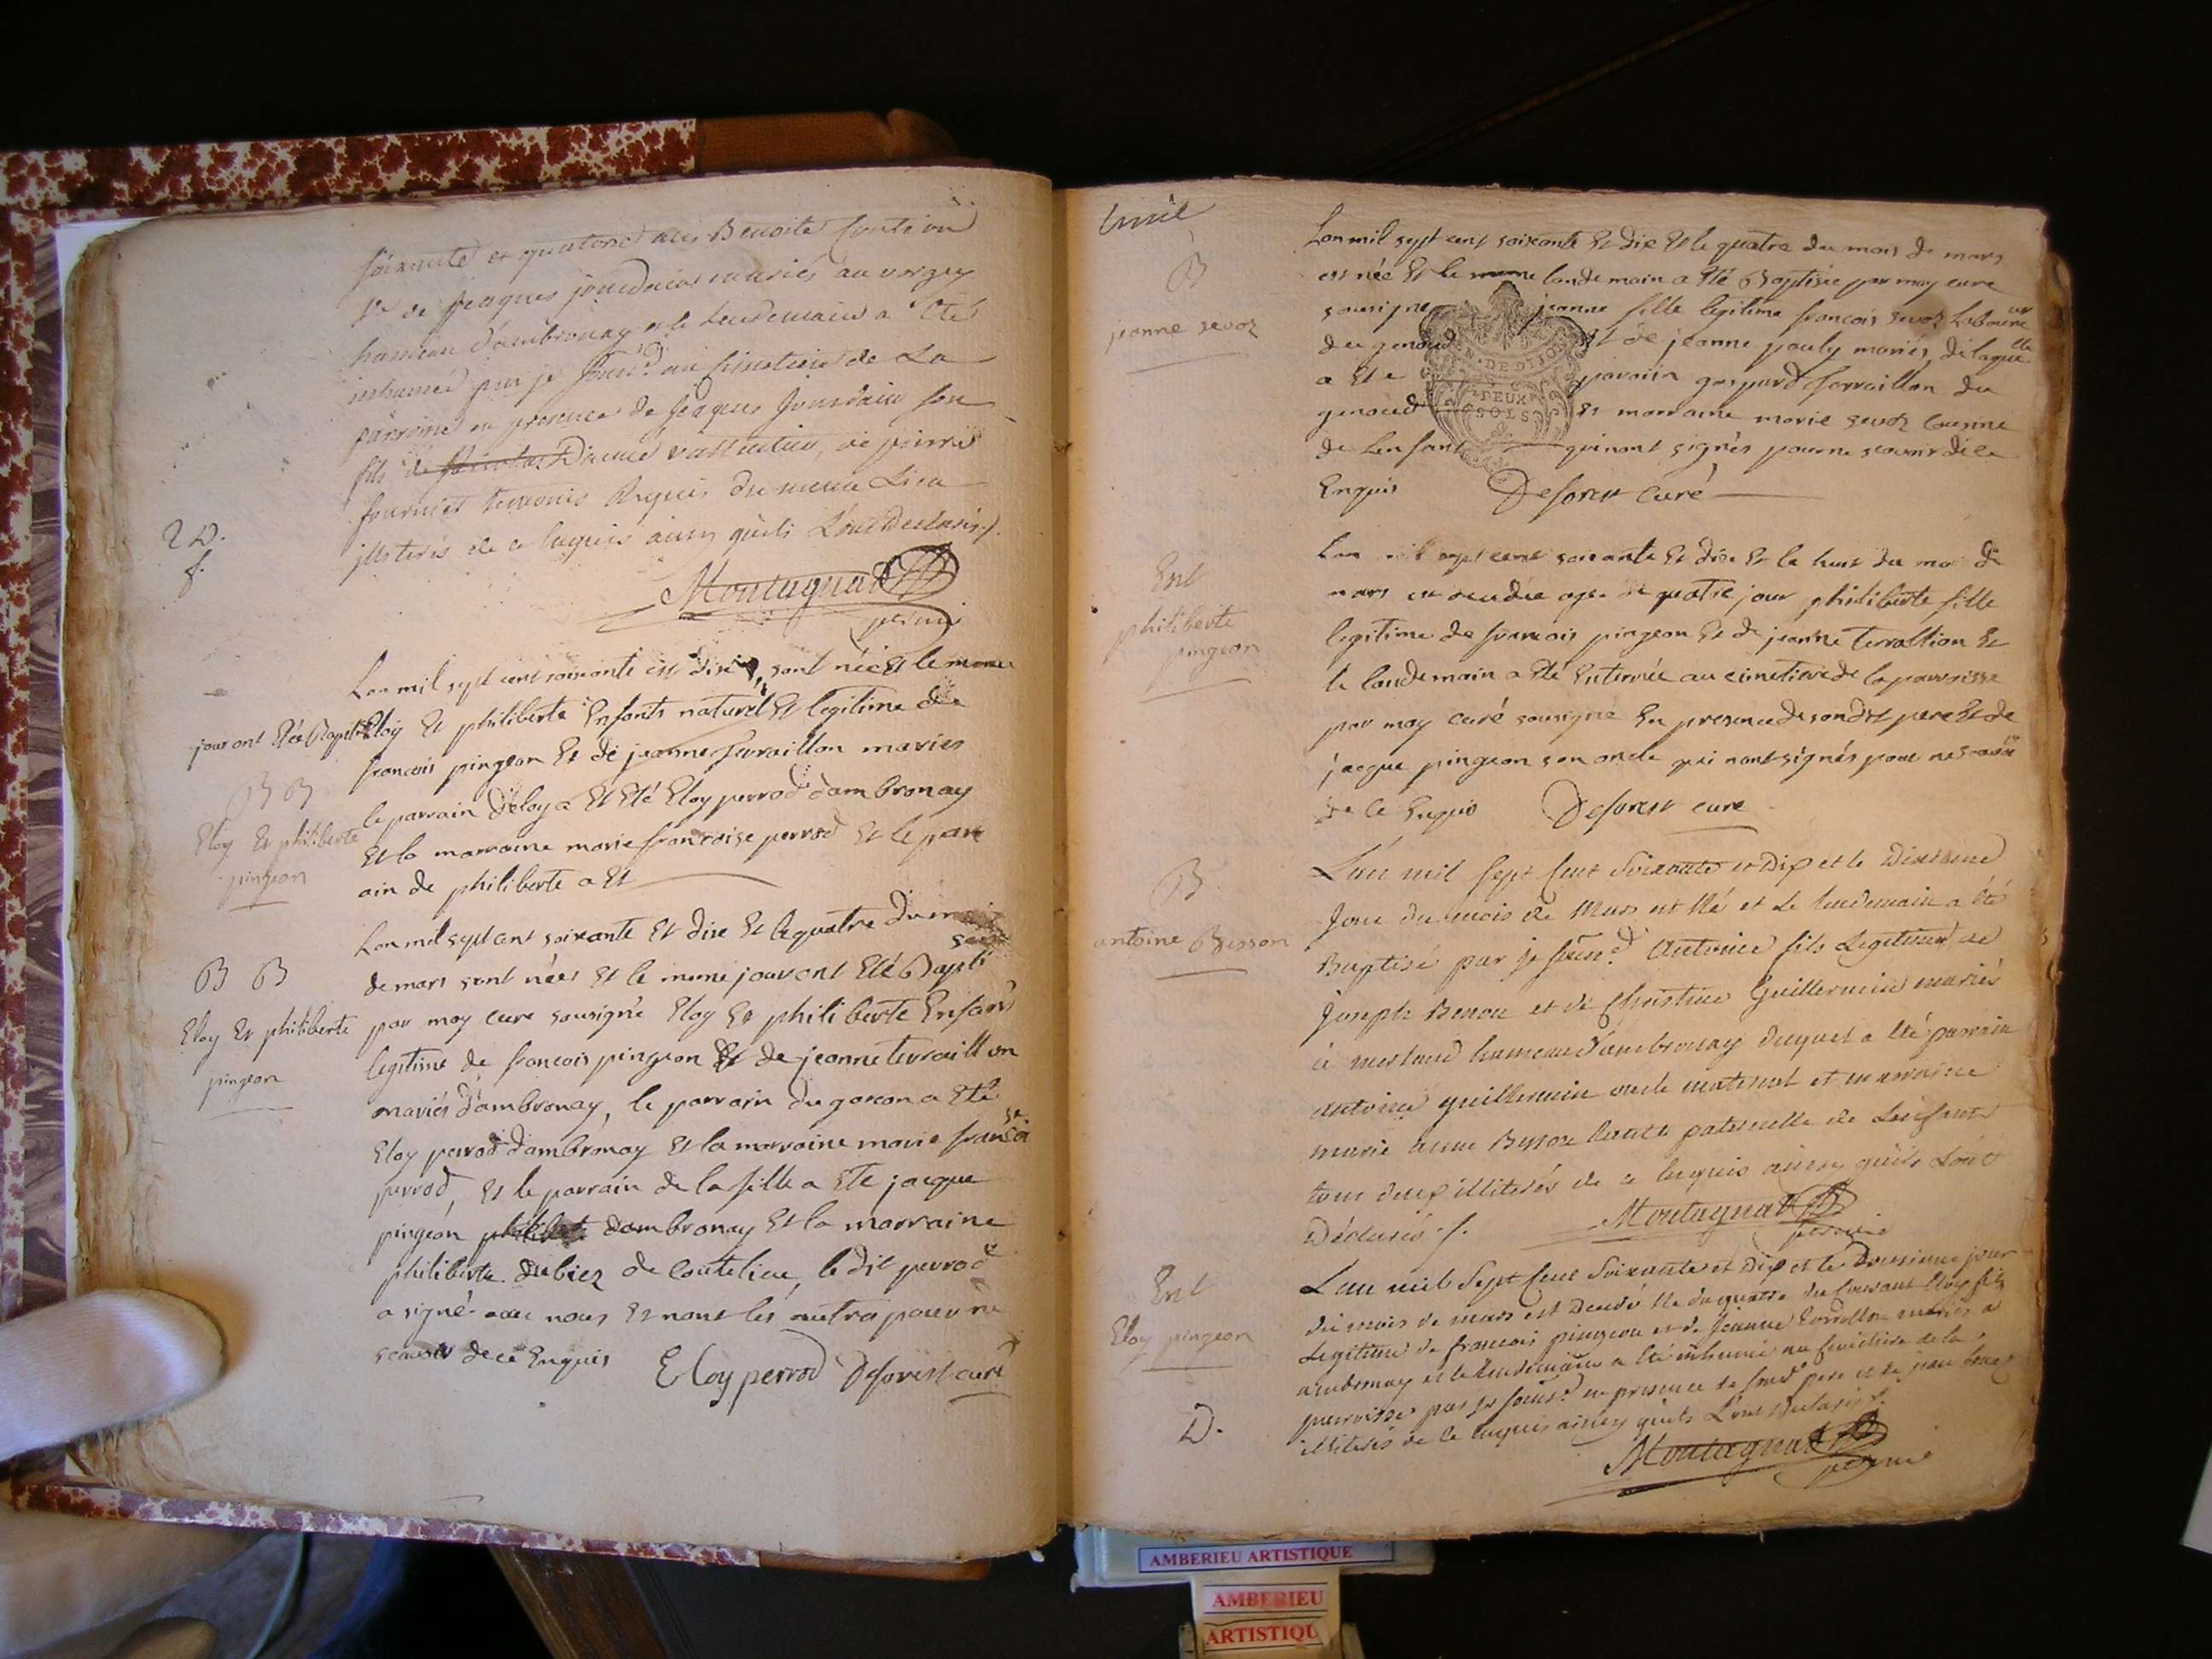 soixante et quatorze ans Benoite
ve de Jacques Jourdain mariés au vorgey
hameau d'ambronay et le lendemain a été
inhumée par je soussd. au cimetiere de La
parroisse en presence de Jacques Jourdain son
fils de Dame et pierre
fournier temoins Requis du meme Lieu
illiterés de ce Enquis ainsy qu'ils L'ont Declarés /.
Montagnat
2 D.
f.
Lan mil sept cent soixante et dix, sont née et le meme
jour ont Eté Baptisé Eloy Et philiberte Enfants naturel Et legitime de
francois pingeon Et de jeanne ferraillon maries
B B
Eloy Et philiberte
pingeon
le parrain d'Eloy a Et Eté Eloy perrod d'ambronay
Et la marraine marie francoise perrod Et le parr
ain de philiberte a Et
B B
Eloy Et philiberte
pingeon
Lan mil sept cent soixante Et dix Et le quatre du mois
de mars sont nées Et le meme jour ont Eté Bapti
sés
par moy cure sousigné Eloy Et philiberte Enfans
legitime de francois pingeon Et de jeanne terraillon
mariés d'ambronay, le parrain du garcon a Eté
Eloy perrod d'ambronay Et la marraine marie francoi
se
perrod, Et le parrain de la fille a Ete jacque
pingeon dambronay Et la marraine
philiberte dubiez de Coutelieu, le dit perrod
a signé avec nous Et nont les autra pour ne
scavoir de ce Enquis Eloy perrod Deforest curé
B
jeanne sevoz
Lan mil sept cent soixante Et dix Et le quatre du mois de mars
est née Et le meme landemain a Eté Baptisée par moy cure
sousigne jeanne fille legitime francois sevoz laboureur
du genoud Et de jeanne pauly mariés, de laquelle
a Ete parain gaspard ferraillon du
genoud Et marraine marie sevoz Cousine
de Lenfant qui nont signés pour ne scavoir de ce
Enquis Deforest Curé
GEN. DE DIJON
DEUX
SOLS
Ent
philiberte
pingeon
Lan mil sept cent soixante Et dix Et le huit du moi de
mars est decedée agee de quatre jour philiberte fille
legitime de francois pingeon Et de jeanne terraillion Et
le landemain a Eté Enterrée au cimetiere de la parroisse
par moy curé sousigné En presence de sondit pere Et de
jacque pingeon son oncle qui nont signés pour ne scavoir
de ce Enquis Deforest cure
B
antoine Besson
L'an mil sept Cent Soixante et Dix et le Dixieme
Jour du mois de Mars est Né et Le lendemain a été
Baptisé par je soussd. Antoine fils Legitime de
Joseph Besson et de Christine Guillermin mariés
à hameau d'ambronay duquel a été parrain
Antoine guillermin oncle maternel et marraine
marie anne Besson tante paternelle de L'enfant
tous deux illiterés de ce Enquis ainsy qu'ils L'ont
Déclarés /. Montagnat
Ent
Eloy pingeon
D.
L'an mil Sept Cent Soixante et Dix et le Douzieme jour
du mois de mars est Decedé Né du quatre du Courant Eloy fils
Legitime de francois pingeon et de Jeanne terraillon mariés a
ambronay et le lendemain a été inhumé au cimetiere de la
parroisse par je soussd. en presence de sond pere et de jean
illiterés de ce Enquis ainsy qu'ils L'ont Declarés /.
Montagnat
AMBERIEU ARTISTIQUE
AMBERIEU
ARTISTIQU